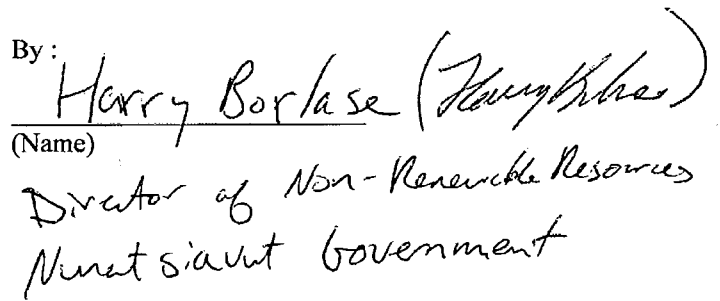 By :
Harry Borlase (Harry Borlase)
(Name)
Director of Non-Renewable Resources
Nunatsiavut Government